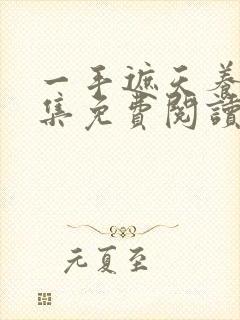 一手遮天養
集免費閱讀
元夏至